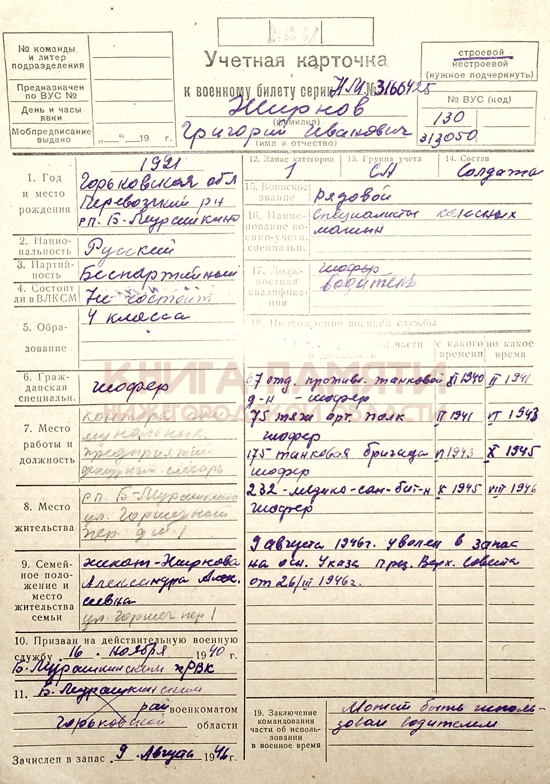 Учетная карточка
к военному билету серии НИ № 3160425
Жирнов
(фамилия)
Григорий Иванович
(имя и отчество)
№ команды
и литер
подразделения
Предназначен
по ВУС №
День и часы
явки
Мобпредписание
выдано „ “ 19 г.
строевой
нестроевой
(нужное подчеркнуть)
№ ВУС (код)
130
313050
1. Год
и место
рождения
1921
Горьковская обл
Перевозский р-н
р.п. Б-Мурашкино
2. Нацио-
нальность
Русский
3. Партий-
ность
Беспартийный
4. Состоит
ли в ВЛКСМ
Не состоит
5. Обра-
зование
4 класса
6. Граж-
данская
специальн.
шофер
7. Место
работы и
должность
предприятий
слесарь
8. Место
жительства
р.п. Б-Мурашкино
ул.
пер. д. 1
9. Семей-
ное поло-
жение и
место
жительства
семьи
Жирнова
Александра Алек
сеевна
ул. пер 1
10. Призван на действительную военную
службу „16“ ноября 1940 г.
Б. Мурашкинским РВК
11. Б. Мурашкинским
рай военкоматом
Горьковской области
Зачислен в запас „9“ Августа 1946 г.
12. Запас категории
1
13. Группа учета
СА
14. Состав
Солдаты
15. Воинское
звание
Рядовой
16. Наиме-
нование во-
енно-учетн.
специальн.
Специалисты колесных
машин
17. Долж-
ностная
квалифика-
ция
шофер
водитель
18. Прохождение военной службы
части
и должность
с какого
времени
по какое
время
67 отд. против. танковой XI 1940 II 1941
д-н - шофер
75 тяж арт. полк II 1941 VI 1943
шофер
175 танковая бригада VI 1943 X 1945
шофер
232-медико-сан-бат-н X 1945 VIII 1946
шофер
9 августа 1946г. уволен в запас
на осн. Указа през. Верх. Совета
от 26/III 1946г.
19. Заключение
командования
части об исполь-
зовании
в военное время
Может быть исполь-
зован водителем
КНИГА ПАМЯТИ
НИЖЕГОРОДСКОЙ ОБЛАСТИ